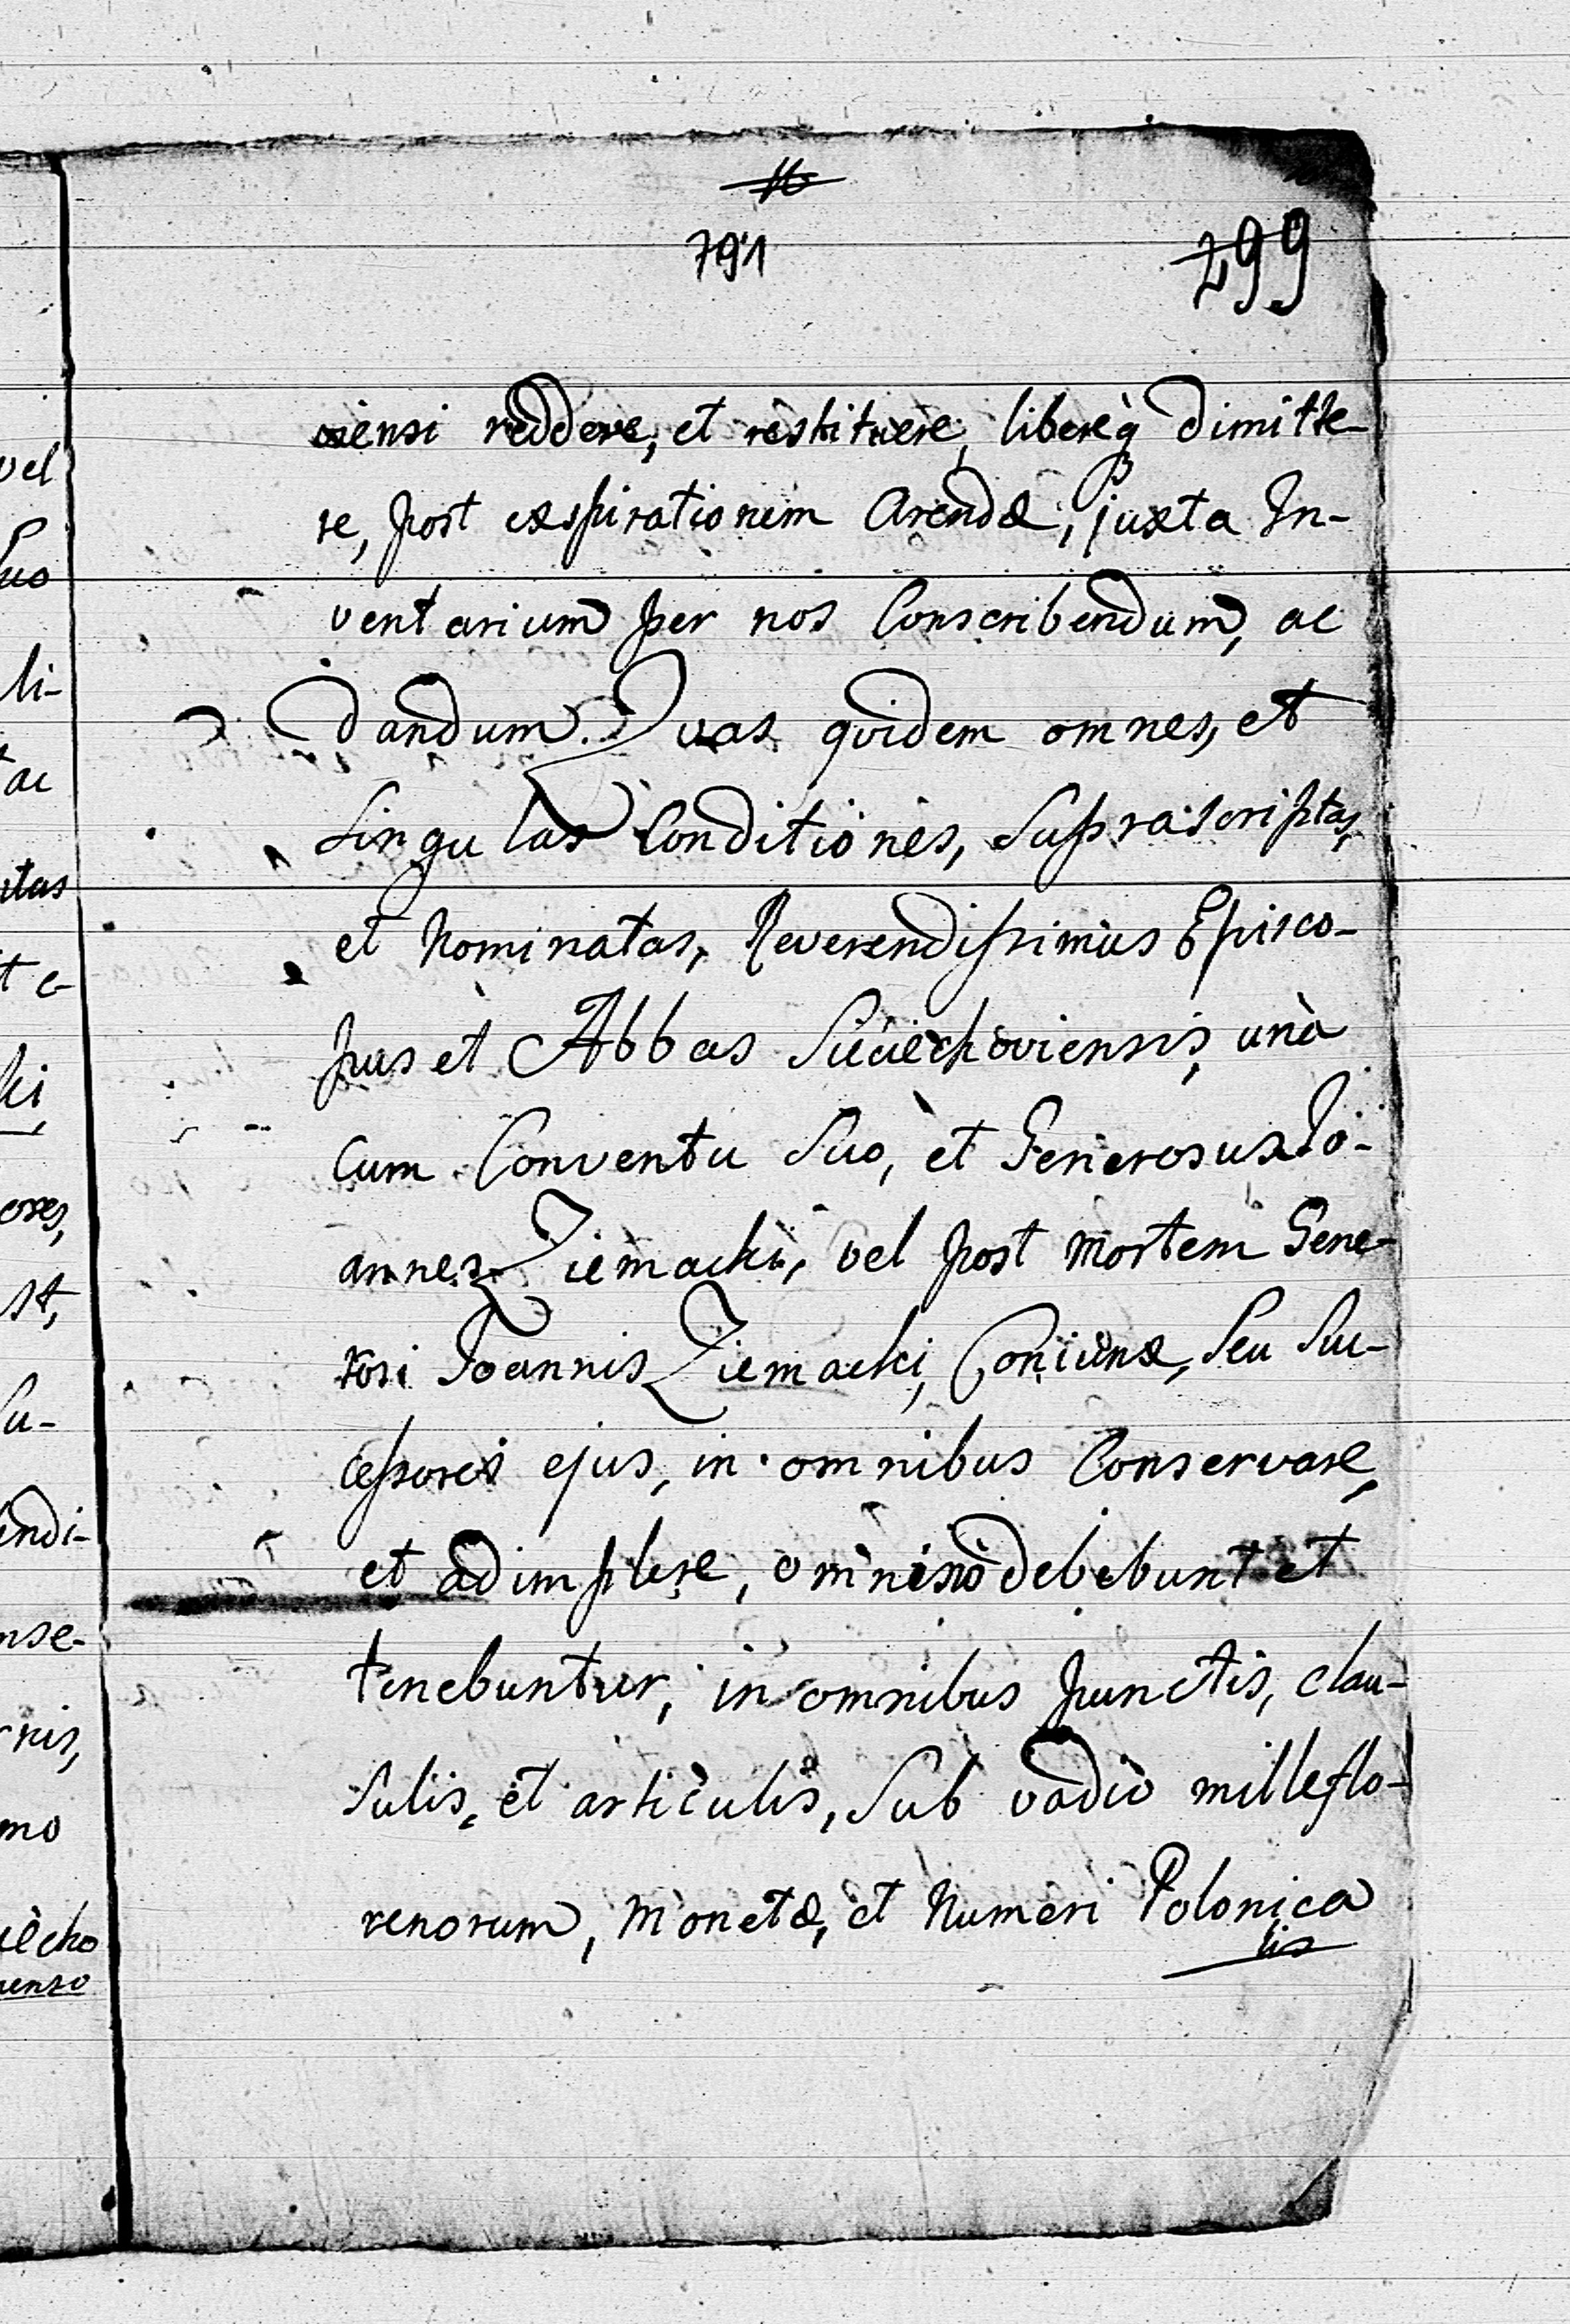 16
791
299
viensi reddere, et restituere, libereq dimitte-
re, post exspirationem Arendæ, juxta In-
ventarium per nos Conscribendum, ac
dandum. Quas quidem omnes, et
Singulas Conditiones, Suprascriptas,
et Nominatas, Reverendissimus Episco-
pus et Abbas Sieciechoviensis, unà
cum Conventu Suo, et Generosus Jo-
annes Ziemacki, vel post mortem Gene-
rosi Joannis Ziemacki, Coniunx, Seu Suc-
cessores ejus, in omnibus Conservare,
et adimplere, omninò debebunt et
tenebuntur, in omnibus punctis, clau-
sulis, et articulis, Sub vadio mille flo-
renorum, Monetæ, et Numeri Polonica
lis
vel
suo
li-
ac
ptas
t e-
ki
ores,
st,
Su-
endi-
nse-
rnis,
mo
iecho
venso